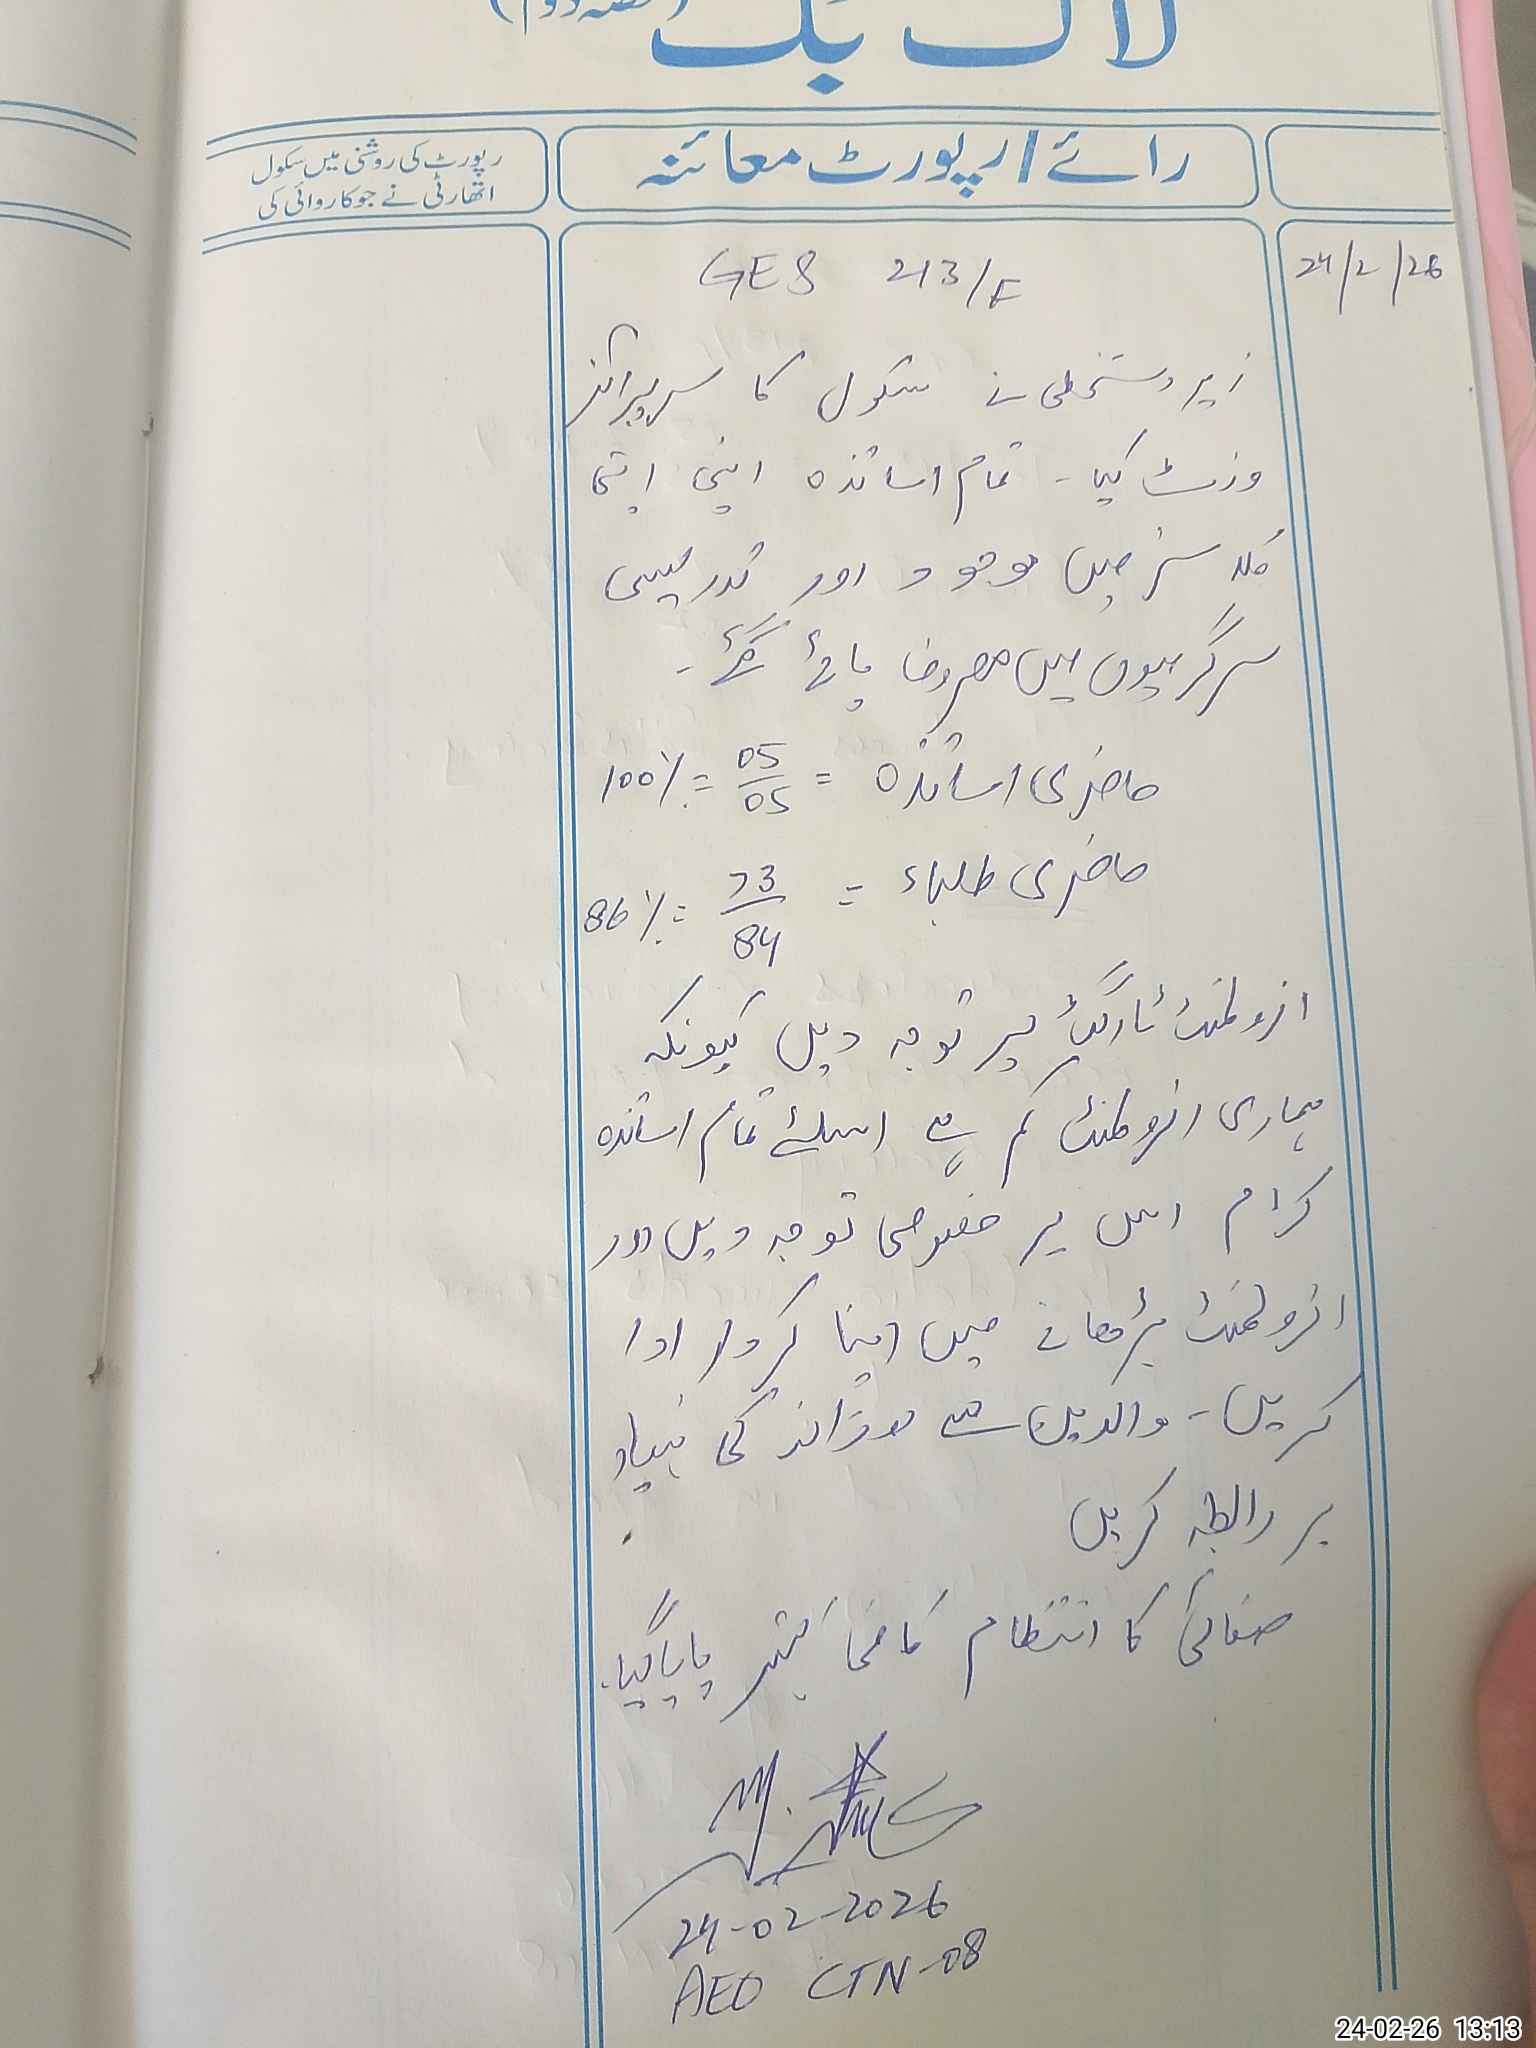 لاگ بک
(حصہ دوم)
رائے / رپورٹ معائنہ
رپورٹ کی روشنی میں سکول
اتھارٹی نے جو کاروائی کی
24/2/26
GES 213/F
زیر دستخطی نے سکول کا سرپرائز
وزٹ کیا۔ تمام اساتذہ اپنی اپنی
کلاسز میں موجود اور تدریسی
سرگرمیوں میں مصروف پائے گئے۔
حاضری اساتذہ = 05/05 = 100%
حاضری طلباء = 73/84 = 86%
انرولمنٹ ٹارگٹ پر توجہ دیں کیونکہ
ہماری انرولمنٹ کم ہے اسلئے تمام اساتذہ
کرام اس پر خصوصی توجہ دیں اور
انرولمنٹ بڑھانے میں اپنا کردار ادا
کریں۔ والدین سے روزانہ کی بنیاد
پر رابطہ کریں
صفائی کا انتظام کافی بہتر پایا گیا۔
24-02-2026
AEO CTN-08
24-02-26 13:13